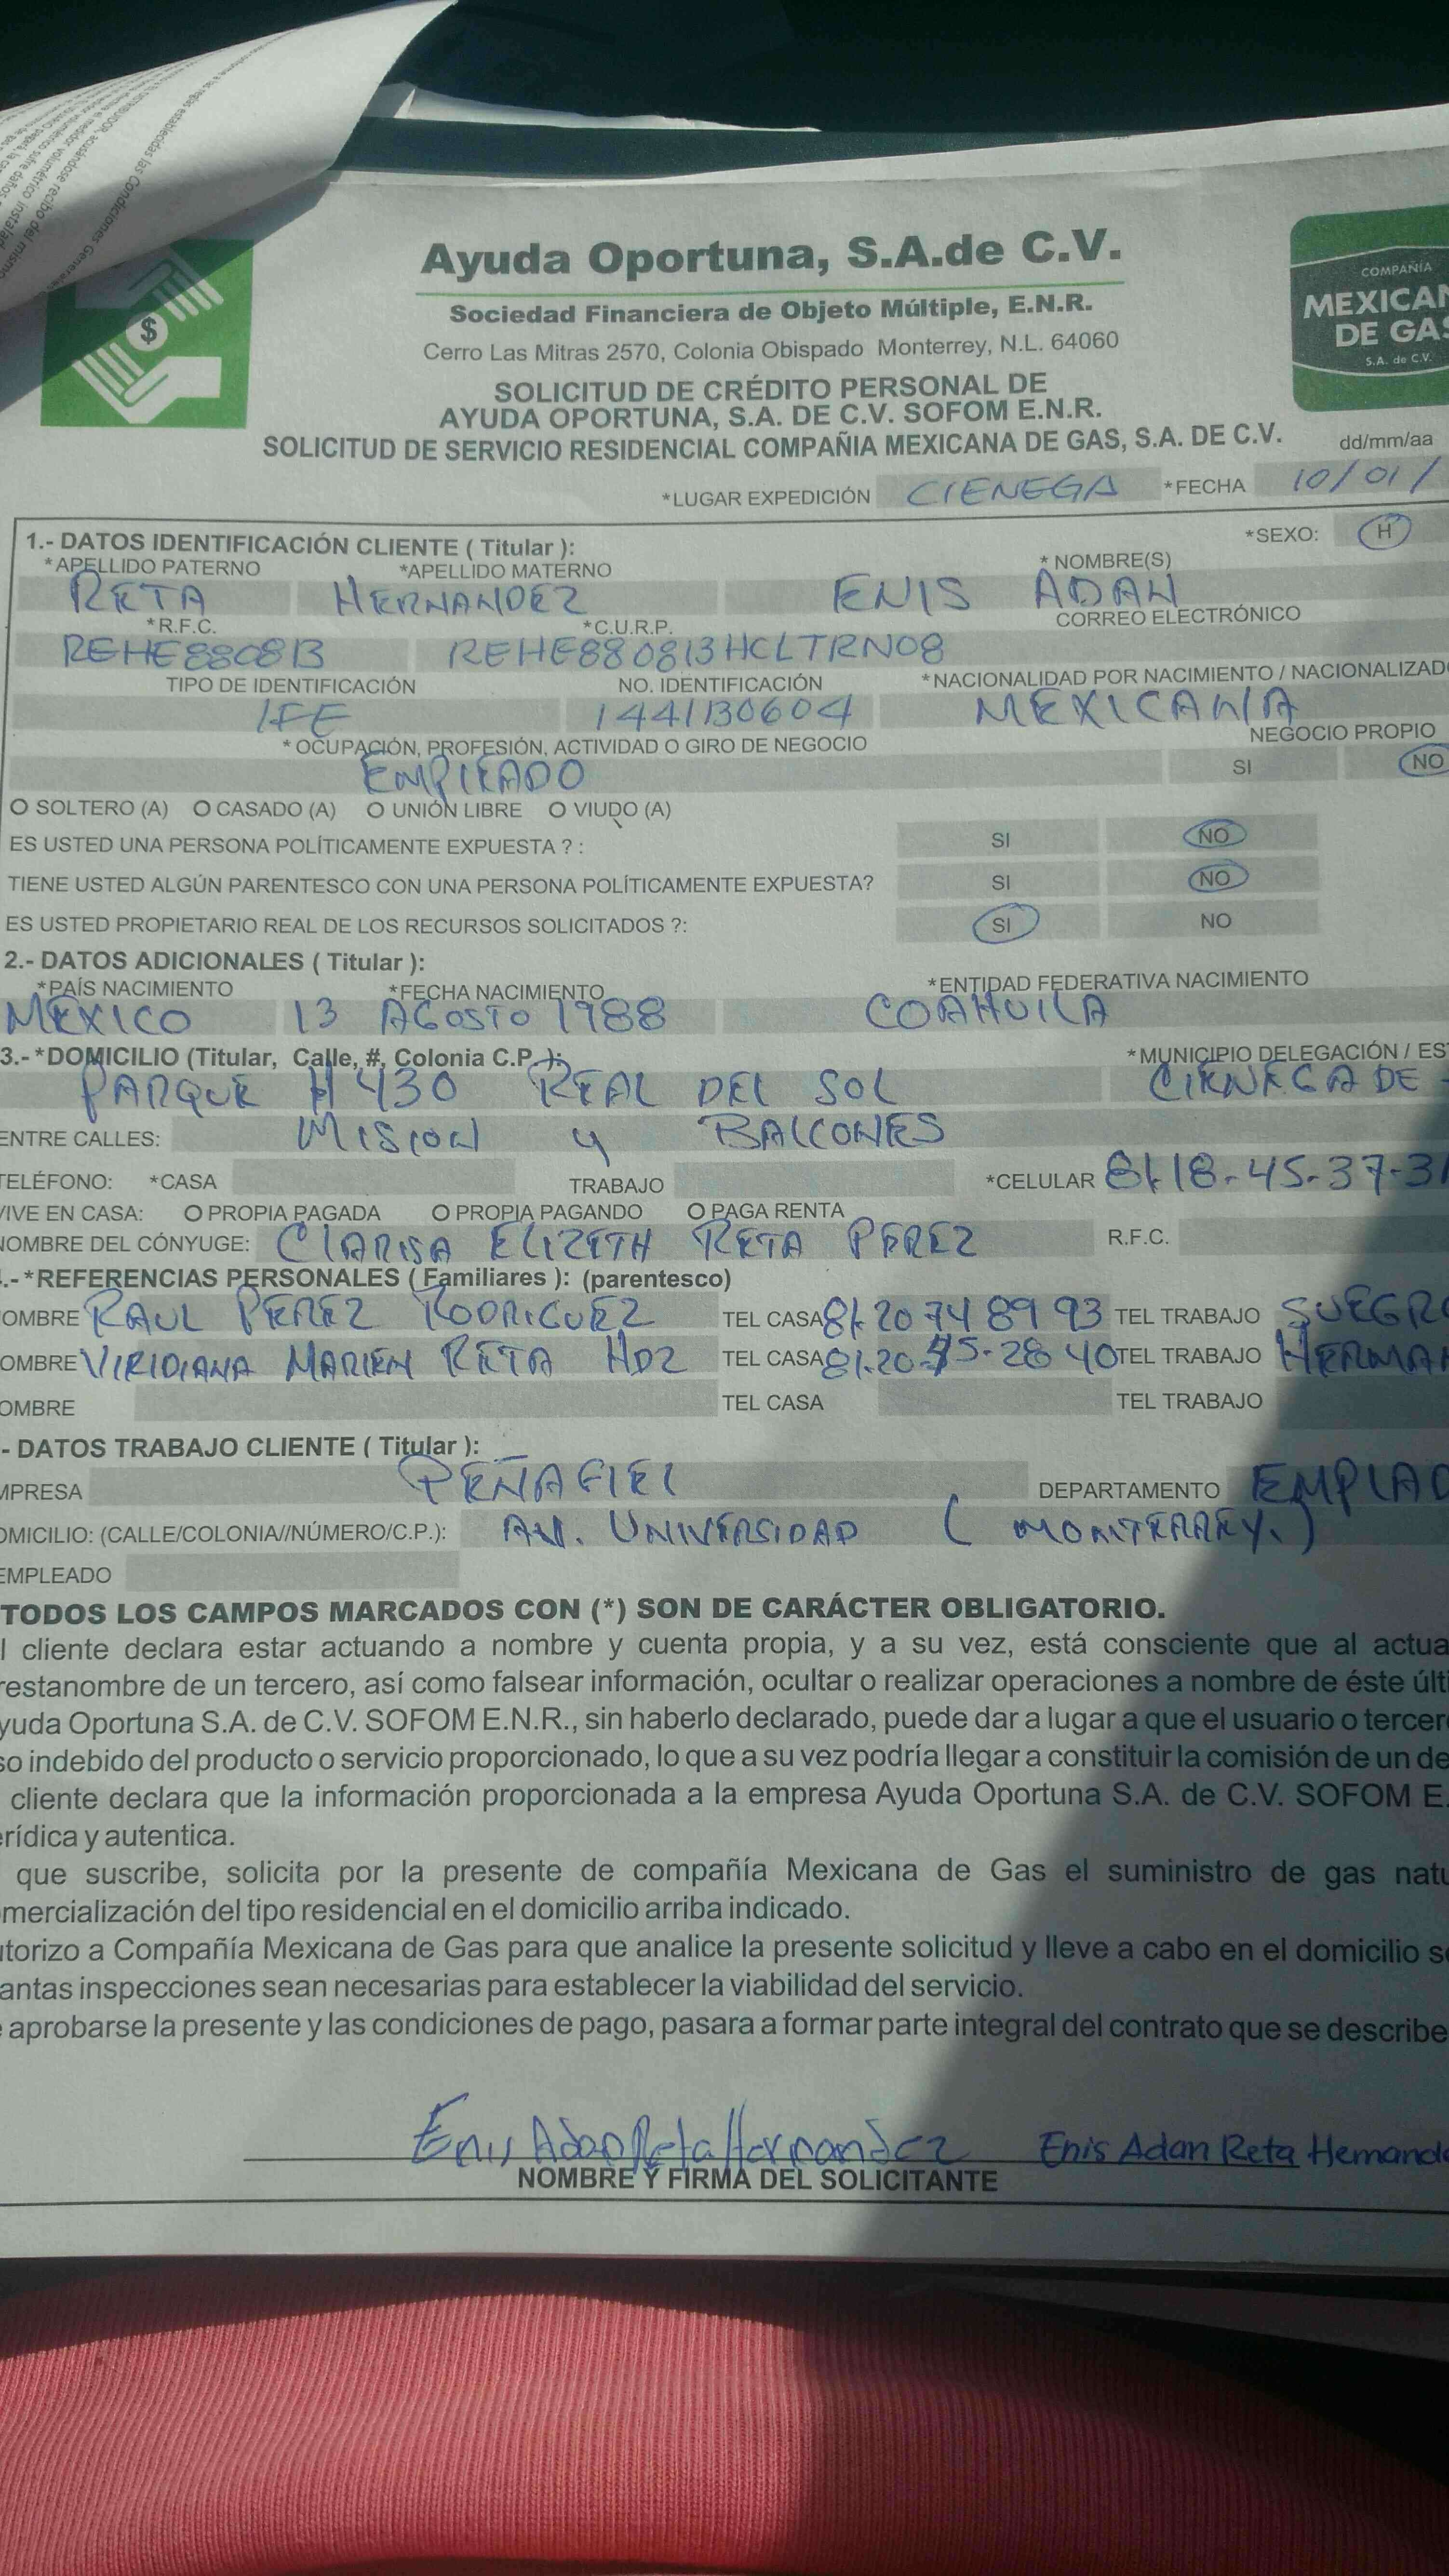 Ayuda Oportuna, S.A.de C.V.
Sociedad Financiera de Objeto Múltiple, E.N.R.
Cerro Las Mitras 2570, Colonia Obispado Monterrey, N.L. 64060
COMPAÑÍA
MEXICAN
DE GAS
S.A. de C.V.
SOLICITUD DE CRÉDITO PERSONAL DE
AYUDA OPORTUNA, S.A. DE C.V. SOFOM E.N.R.
SOLICITUD DE SERVICIO RESIDENCIAL COMPAÑIA MEXICANA DE GAS, S.A. DE C.V. dd/mm/aa
*LUGAR EXPEDICIÓN CIENEGA *FECHA 10/01/
1.- DATOS IDENTIFICACIÓN CLIENTE ( Titular ): *SEXO: H
*APELLIDO PATERNO *APELLIDO MATERNO * NOMBRE(S)
RETA HERNANDEZ ENIS ADAN
*R.F.C. *C.U.R.P. CORREO ELECTRÓNICO
REHE880813 REHE880813HCLTRN08
TIPO DE IDENTIFICACIÓN NO. IDENTIFICACIÓN *NACIONALIDAD POR NACIMIENTO / NACIONALIZADO
IFE 1441130604 MEXICANA
* OCUPACIÓN, PROFESIÓN, ACTIVIDAD O GIRO DE NEGOCIO NEGOCIO PROPIO
EMPLEADO SI NO
O SOLTERO (A) O CASADO (A) O UNIÓN LIBRE O VIUDO (A)
ES USTED UNA PERSONA POLÍTICAMENTE EXPUESTA ? : SI NO
TIENE USTED ALGÚN PARENTESCO CON UNA PERSONA POLÍTICAMENTE EXPUESTA? SI NO
ES USTED PROPIETARIO REAL DE LOS RECURSOS SOLICITADOS ?: SI NO
2.- DATOS ADICIONALES ( Titular ):
*PAÍS NACIMIENTO *FECHA NACIMIENTO *ENTIDAD FEDERATIVA NACIMIENTO
MEXICO 13 AGOSTO 1988 COAHUILA
3.- *DOMICILIO (Titular, Calle, #, Colonia C.P.): *MUNICIPIO DELEGACIÓN / EST
PARQUE # 430 REAL DEL SOL CIENEGA DE
ENTRE CALLES: MISION y BALCONES
TELÉFONO: *CASA TRABAJO *CELULAR 81-18-45-37-3
VIVE EN CASA: O PROPIA PAGADA O PROPIA PAGANDO O PAGA RENTA
NOMBRE DEL CÓNYUGE: CLARISA ELIZETH RETA PEREZ R.F.C.
.-*REFERENCIAS PERSONALES ( Familiares ): (parentesco)
OMBRE RAUL PEREZ RODRIGUEZ TEL CASA 81-20 74 89 93 TEL TRABAJO SUEGRO
OMBRE VIRIDIANA MARIEN RETA HDZ TEL CASA 81-20-45-28 40 TEL TRABAJO HERMAN
OMBRE TEL CASA TEL TRABAJO
- DATOS TRABAJO CLIENTE ( Titular ):
MPRESA PEÑAFIEL DEPARTAMENTO EMPLAD
OMICILIO: (CALLE/COLONIA//NÚMERO/C.P.): AV. UNIVERSIDAD ( MONTERREY. )
EMPLEADO
TODOS LOS CAMPOS MARCADOS CON (*) SON DE CARÁCTER OBLIGATORIO.
l cliente declara estar actuando a nombre y cuenta propia, y a su vez, está consciente que al actua
restanombre de un tercero, así como falsear información, ocultar o realizar operaciones a nombre de éste últi
yuda Oportuna S.A. de C.V. SOFOM E.N.R., sin haberlo declarado, puede dar a lugar a que el usuario o tercero
so indebido del producto o servicio proporcionado, lo que a su vez podría llegar a constituir la comisión de un de
cliente declara que la información proporcionada a la empresa Ayuda Oportuna S.A. de C.V. SOFOM E.
erídica y autentica.
que suscribe, solicita por la presente de compañía Mexicana de Gas el suministro de gas natu
mercialización del tipo residencial en el domicilio arriba indicado.
utorizo a Compañía Mexicana de Gas para que analice la presente solicitud y lleve a cabo en el domicilio so
antas inspecciones sean necesarias para establecer la viabilidad del servicio.
e aprobarse la presente y las condiciones de pago, pasara a formar parte integral del contrato que se describe
Enis Adan Reta Hernandez Enis Adan Reta Hernande
NOMBRE Y FIRMA DEL SOLICITANTE